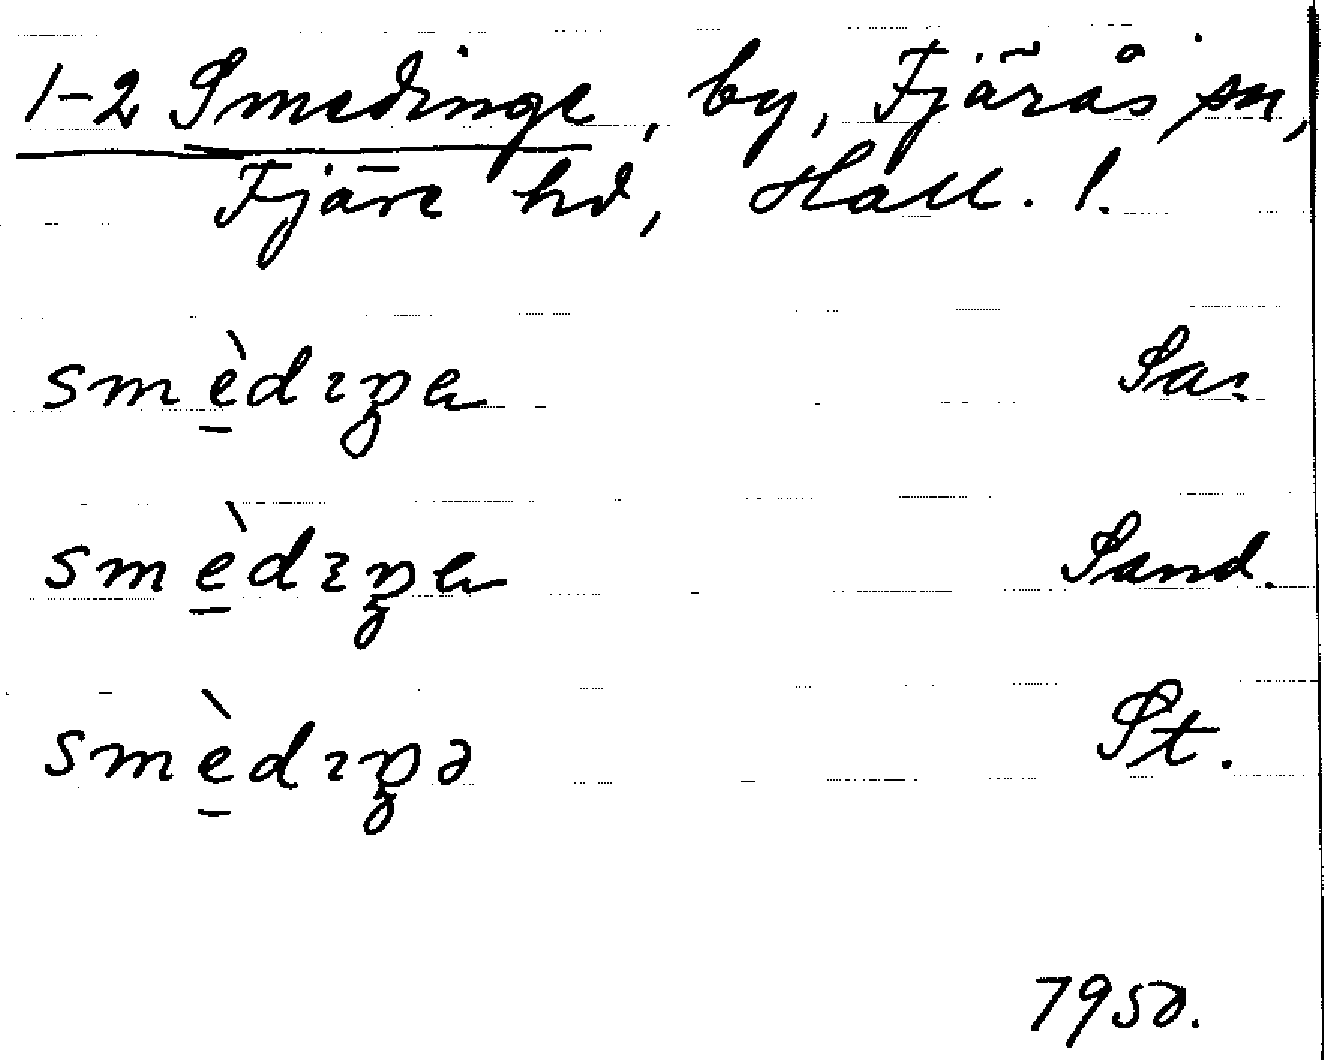 1-2 Smedinge, by, Fjärås sn,
Fjäre hd, Hall. l.
smè̲dıŋa Sa:
smè̲dıŋa Sand.
smè̲dıŋə St.
7950.